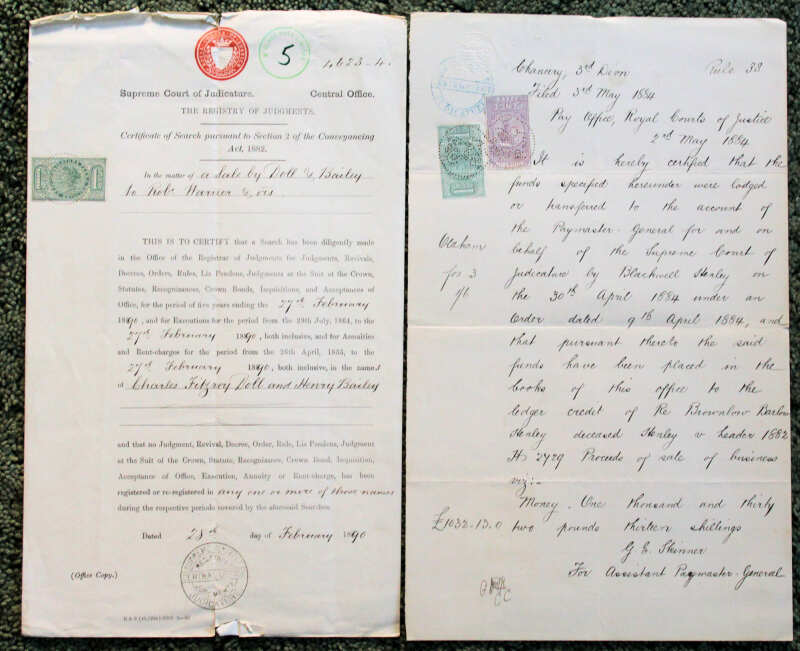 5
1623-4.
Supreme Court of Judicature. Central Office.
THE REGISTRY OF JUDGMENTS.
Certificate of Search pursuant to Section 2 of the Conveyancing
Act, 1882.
In the matter of a sale by Doll & Bailey
to Robt Warner & ors.
THIS IS TO CERTIFY that a Search has been diligently made
in the Office of the Registrar of Judgments for Judgments, Revivals,
Decrees, Orders, Rules, Lis Pendens, Judgments at the Suit of the Crown,
Statutes, Recognizances, Crown Bonds, Inquisitions, and Acceptances
of Office, for the period of five years ending the 27th February
1890, and for Executions for the period from the 29th July, 1864, to the
27th February 1890, both inclusive, and for Annuities
and Rent-charges for the period from the 26th April, 1855, to the
27th February 1890, both inclusive, in the names
of Charles Fitzroy Doll and Henry Bailey
and that no Judgment, Revival, Decree, Order, Rule, Lis Pendens, Judgment
at the Suit of the Crown, Statute, Recognizance, Crown Bond, Inquisition,
Acceptance of Office, Execution, Annuity or Rent-charge, has been
registered or re-registered in any one or more of those names
during the respective periods covered by the aforesaid Searches.
Dated 28th day of February 1890
(Office Copy.)
Chancery, 3rd Divon Rule 33
Filed 3rd May 1884
Pay Office, Royal Courts of Justice
2nd May 1884
It is hereby certified that the
funds specified hereunder were lodged
or transferred to the account of
the Paymaster-General for and on
behalf of the Supreme Court of
Judicature by Blackwell Henley on
the 30th April 1884 under an
Order dated 9th April 1884, and
that pursuant thereto the said
funds have been placed in the
books of this office to the
ledger credit of Re Brownlow Barlow
Henley deceased Henley v Leader 1882
H 2729 Proceeds of sale of business
viz:-
Money. One thousand and thirty
£1032-13.0 two pounds thirteen shillings
G. E. Skinner
For Assistant Paymaster-General
fos 3